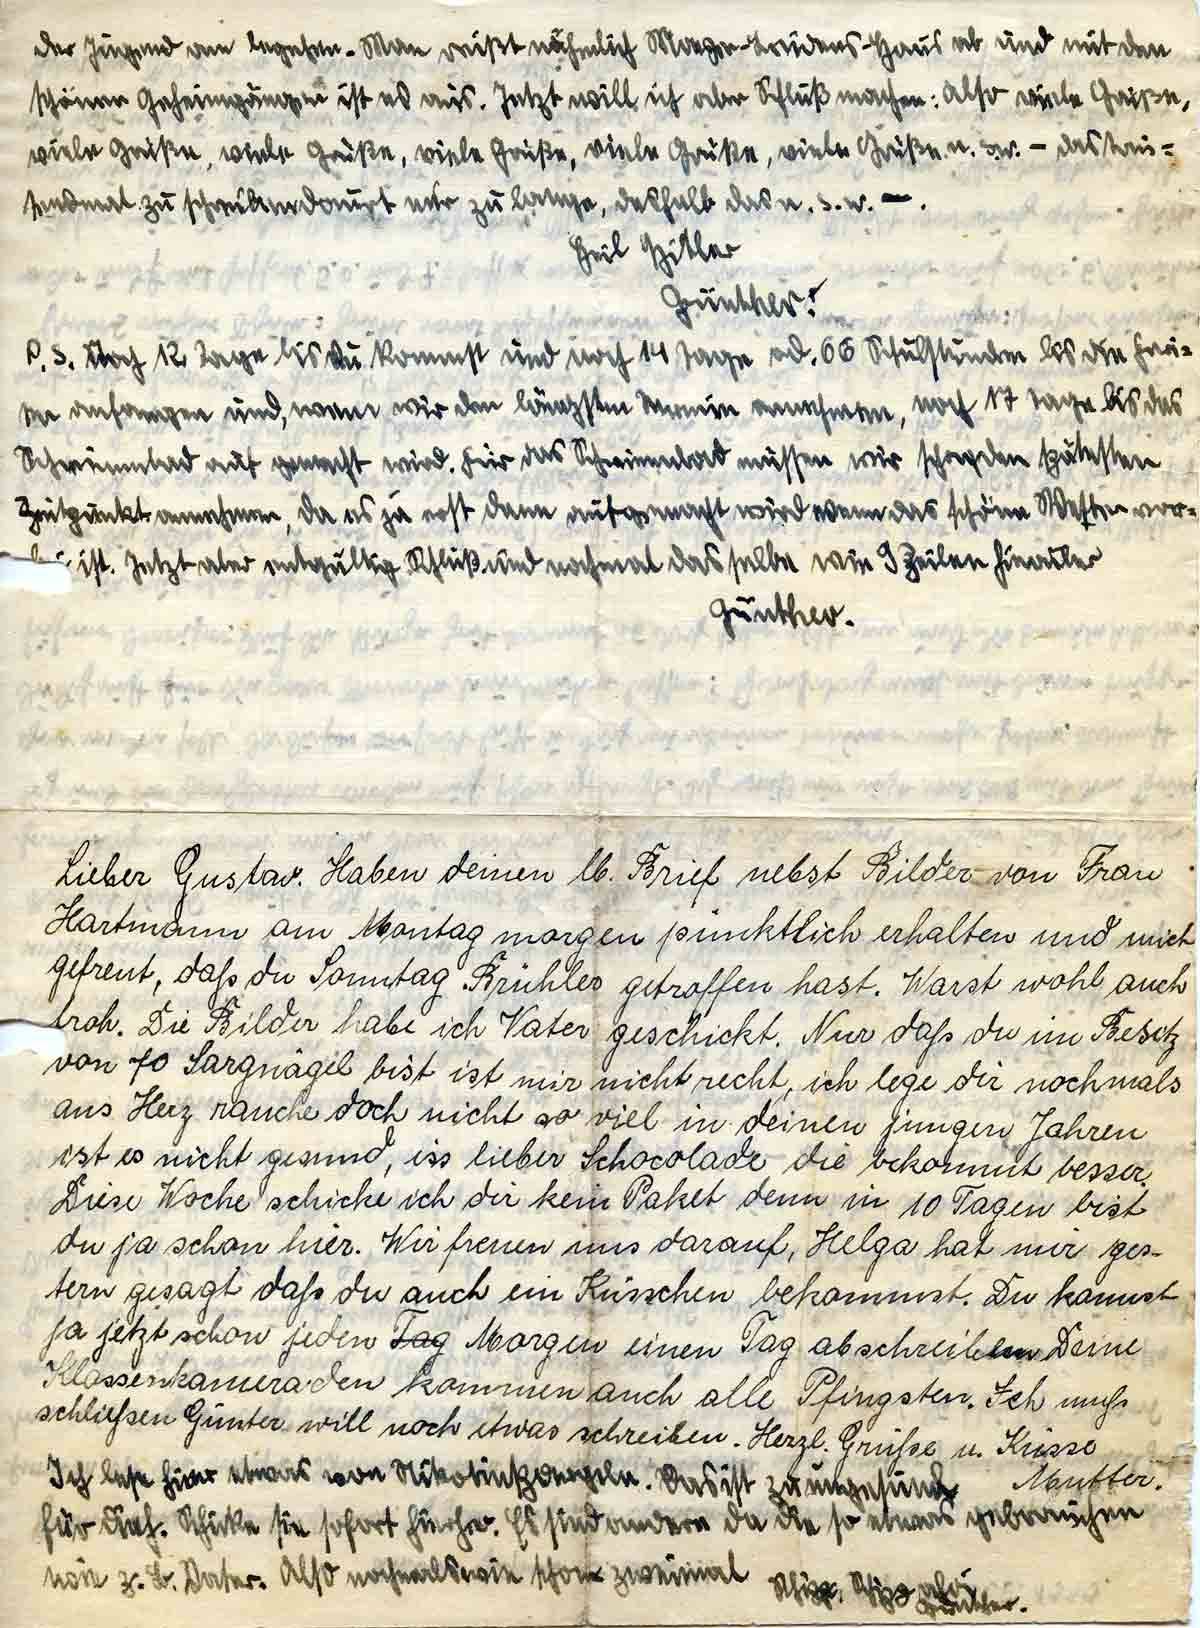 der Jugend am legesten. Man reißt nähmlich ab und mit den
schönen Geheimgängen ist es aus. Jetzt will ich aber Schluß machen: Also viele Grüße,
viele Grüße, viele Grüße, viele Grüße, viele Grüße, viele Grüße u. s. w. – das tau=
sendmal zu schreiben daurt mir zu lange, deshalb das u. s. w. –.
Heil Hitler
Günther!
P. S. Noch 12 Tage bis du kommst und noch 14 Tage od. 66 Schulstunden bis die Feri=
en anfangen und, wenn wir den längsten Termin annehmen, noch 17 Tage bis das
Schwimmbad auf gemacht wird. Für das Schwimmbad müssen wir schon den spätesten
Zeitpunkt annehmen, da es ja erst dann aufgemacht wird wenn das schöne Wetter vor=
bei ist. Jetzt aber entgültig Schluß und nochmal das selbe wie 9 Zeilen hierüber
Günther.
Lieber Gustav. Haben deinen lb. Brief nebst Bilder von Frau
Hartmann am Montag morgen pünktlich erhalten und mich
gefreut, daß du Sonntag Brühler getroffen hast. Warst wohl auch
froh. Die Bilder habe ich Vater geschickt. Nur daß du im Besitz
von 70 Sargnägel bist ist mir nicht recht, ich lege dir nochmals
ans Herz rauche doch nicht so viel in deinen jungen Jahren
ist es nicht gesund, iss lieber Schocolade die bekommt besser.
Diese Woche schicke ich dir kein Paket denn in 10 Tagen bist
du ja schon hier. Wir freuen uns darauf, Helga hat mir ges-
tern gesagt daß du auch ein Küsschen bekommst. Du kannst
ja jetzt schon jeden Tag Morgen einen Tag abschreiben Deine
Klassenkameraden kommen auch alle Pfingsten. Ich muß
schließen Günter will noch etwas schreiben. Herzl. Grüße u. Küsse
Mutter.
Ich lese hier etwas von Nikotinstengeln. Das ist zu ungesund
für dich. Schicke sie sofort hierher. Es sind andere da die so etwas gebrauchen
wie z. B. Vater. Also nochmals wie schon zweimal
Günther.